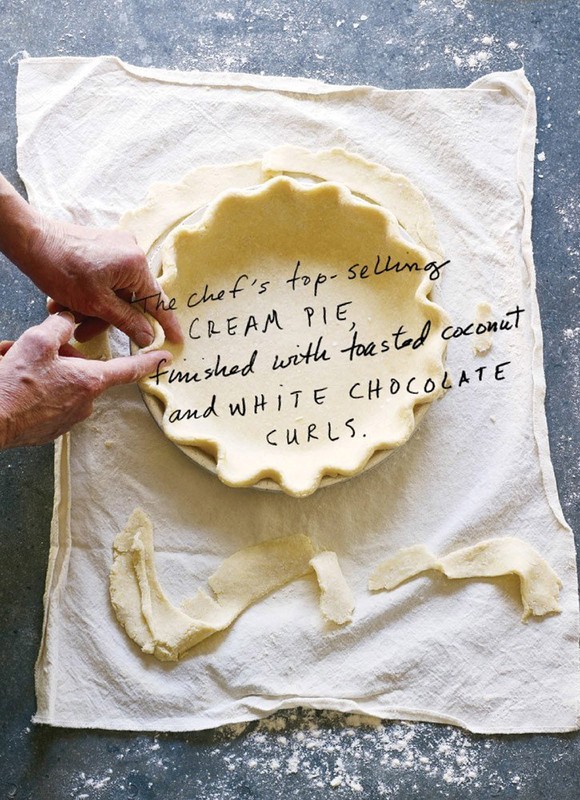 The chef's top-selling
CREAM PIE,
finished with toasted coconut
and WHITE CHOCOLATE
CURLS.